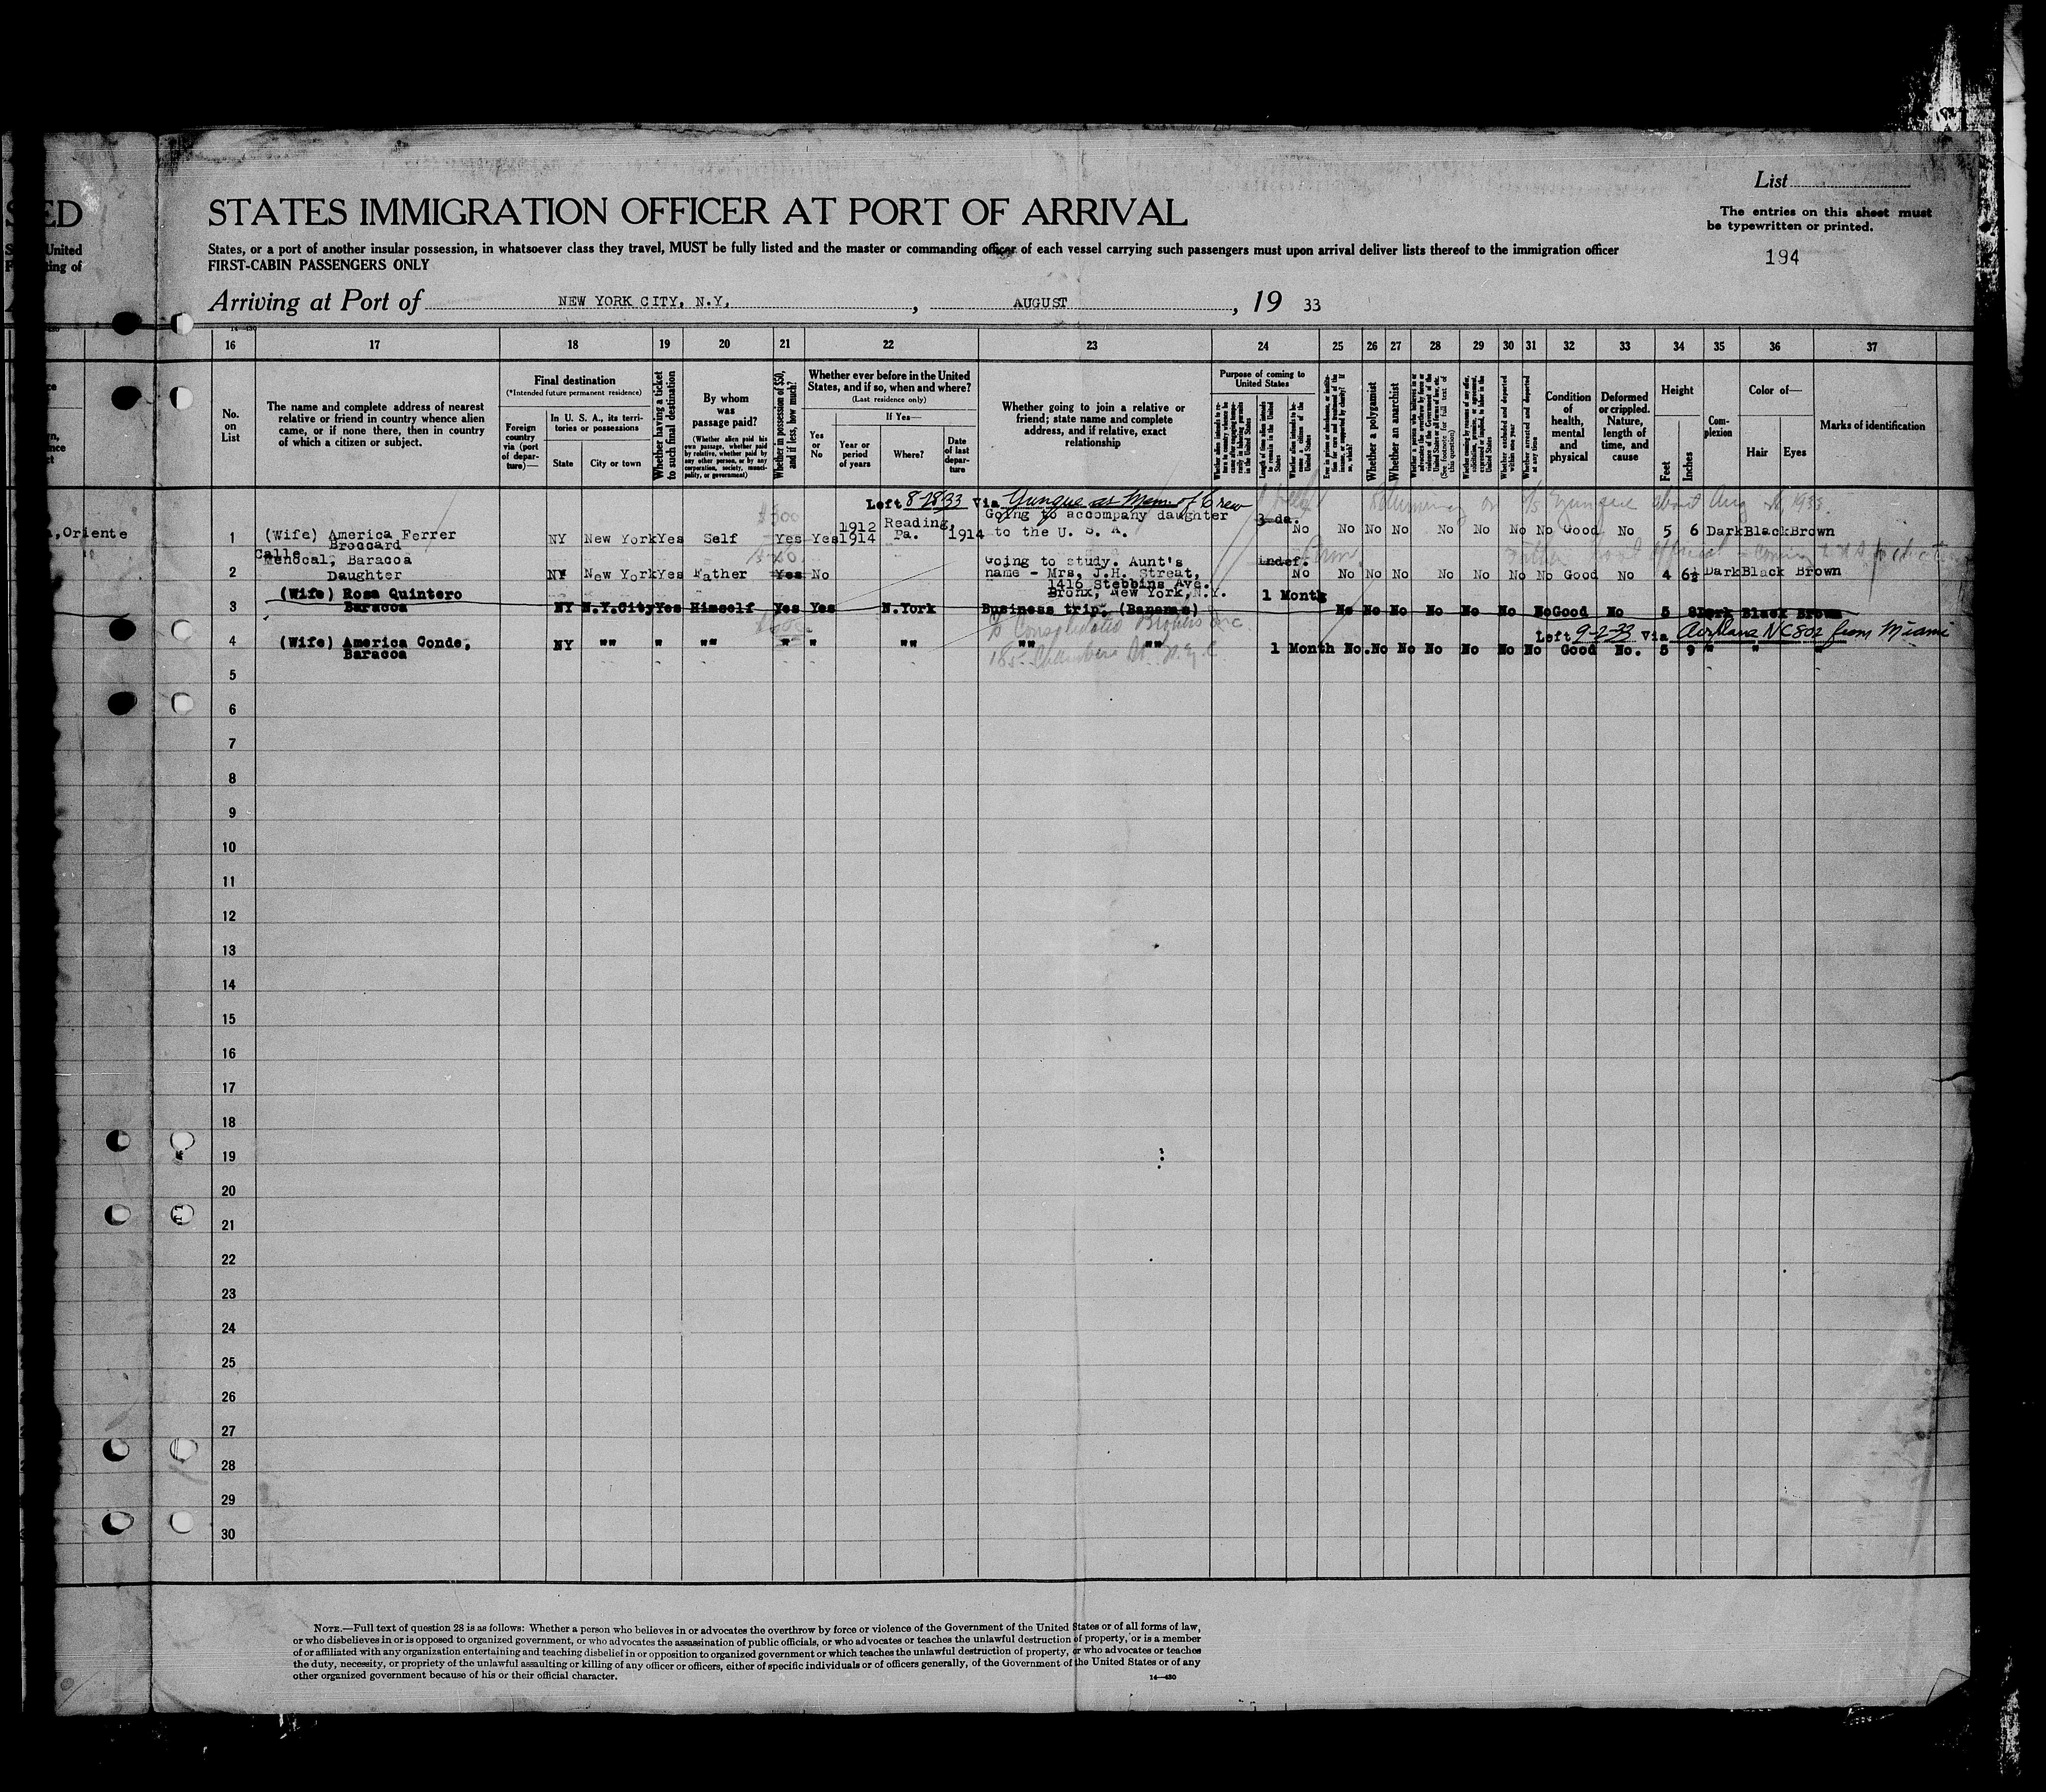 ED
United
ting of
,Oriente
List
The entries on this sheet must
be typewritten or printed.
194
STATES IMMIGRATION OFFICER AT PORT OF ARRIVAL
States, or a port of another insular possession, in whatsoever class they travel, MUST be fully listed and the master or commanding officer of each vessel carrying such passengers must upon arrival deliver lists thereof to the immigration officer
FIRST-CABIN PASSENGERS ONLY
Arriving at Port of NEW YORK CITY, N.Y. , AUGUST , 19 33
14—430
16 17 18 19 20 21 22 23 24 25 26 27 28 29 30 31 32 33 34 35 36 37
No.
on
List
The name and complete address of nearest
relative or friend in country whence alien
came, or if none there, then in country
of which a citizen or subject.
Final destination
(*Intended future permanent residence)
Foreign
country
via (port
of depar-
ture)—
In U. S. A., its terri-
tories or possessions
State
City or town
Whether having a ticket
to such final destination
By whom
was
passage paid?
(Whether alien paid his
own passage, whether paid
by relative, whether paid by
any other person, or by any
corporation, society, munici-
pality, or government)
Whether in possession of $50,
and if less, how much?
Whether ever before in the United
States, and if so, when and where?
(Last residence only)
Yes
or
No
If Yes—
Year or
period
of years
Where?
Date
of last
depar-
ture
Whether going to join a relative or
friend; state name and complete
address, and if relative, exact
relationship
Purpose of coming to
United States
Length of time alien intends
to remain in the United
States
Whether a polygamist
Whether an anarchist
(See footnote for full text of
this question)
Whether arrested and deported
at any time
Condition
of
health,
mental
and
physical
Deformed
or crippled.
Nature,
length of
time, and
cause
Height
Feet
Inches
Com-
plexion
Color of—
Hair
Eyes
Marks of identification
Left 8-28-33 Via Yunque as Mem. of Crew
1 (Wife) America Ferrer
Broccard
NY New York Yes Self Yes Yes 1912
1914 Reading,
Pa. 1914 Going to accompany daughter
to the U. S. A. 3 da. No No No No No No No No Good No 5 6 Dark Black Brown
2 Calle
Menocal, Baracoa
Daughter
NY New York Yes Father Yes No Going to study. Aunt's
name - Mrs. J.H. Streat,
1416 Stebbins Ave.
Bronx, New York, N.Y. Indef. No No No No No No No No Good No 4 6½ Dark Black Brown
3 (Wife) Rosa Quintero
Baracoa
NY N.Y.City Yes Himself Yes Yes N.York Business trip, (Bananas) 1 Month No No No No No No No Good No 5 8 Dark Black Brown
Left 9-2-33 Via Airplane NC802 from Miami
4 (Wife) America Conde,
Baracoa
NY "" " "" " " "" "" "" 1 Month No. No No No No No No Good No. 5 9 " " "
To Consolidated Brokers Inc.
185 Chambers St. N.Y.C.
5
6
7
8
9
10
11
12
13
14
15
16
17
18
19
20
21
22
23
24
25
26
27
28
29
30
NOTE.—Full text of question 28 is as follows: Whether a person who believes in or advocates the overthrow by force or violence of the Government of the United States or of all forms of law,
or who disbelieves in or is opposed to organized government, or who advocates the assassination of public officials, or who advocates or teaches the unlawful destruction of property, or is a member
of or affiliated with any organization entertaining and teaching disbelief in or opposition to organized government or which teaches the unlawful destruction of property, or who advocates or teaches
the duty, necessity, or propriety of the unlawful assaulting or killing of any officer or officers, either of specific individuals or of officers generally, of the Government of the United States or of any
other organized government because of his or their official character.
14—430